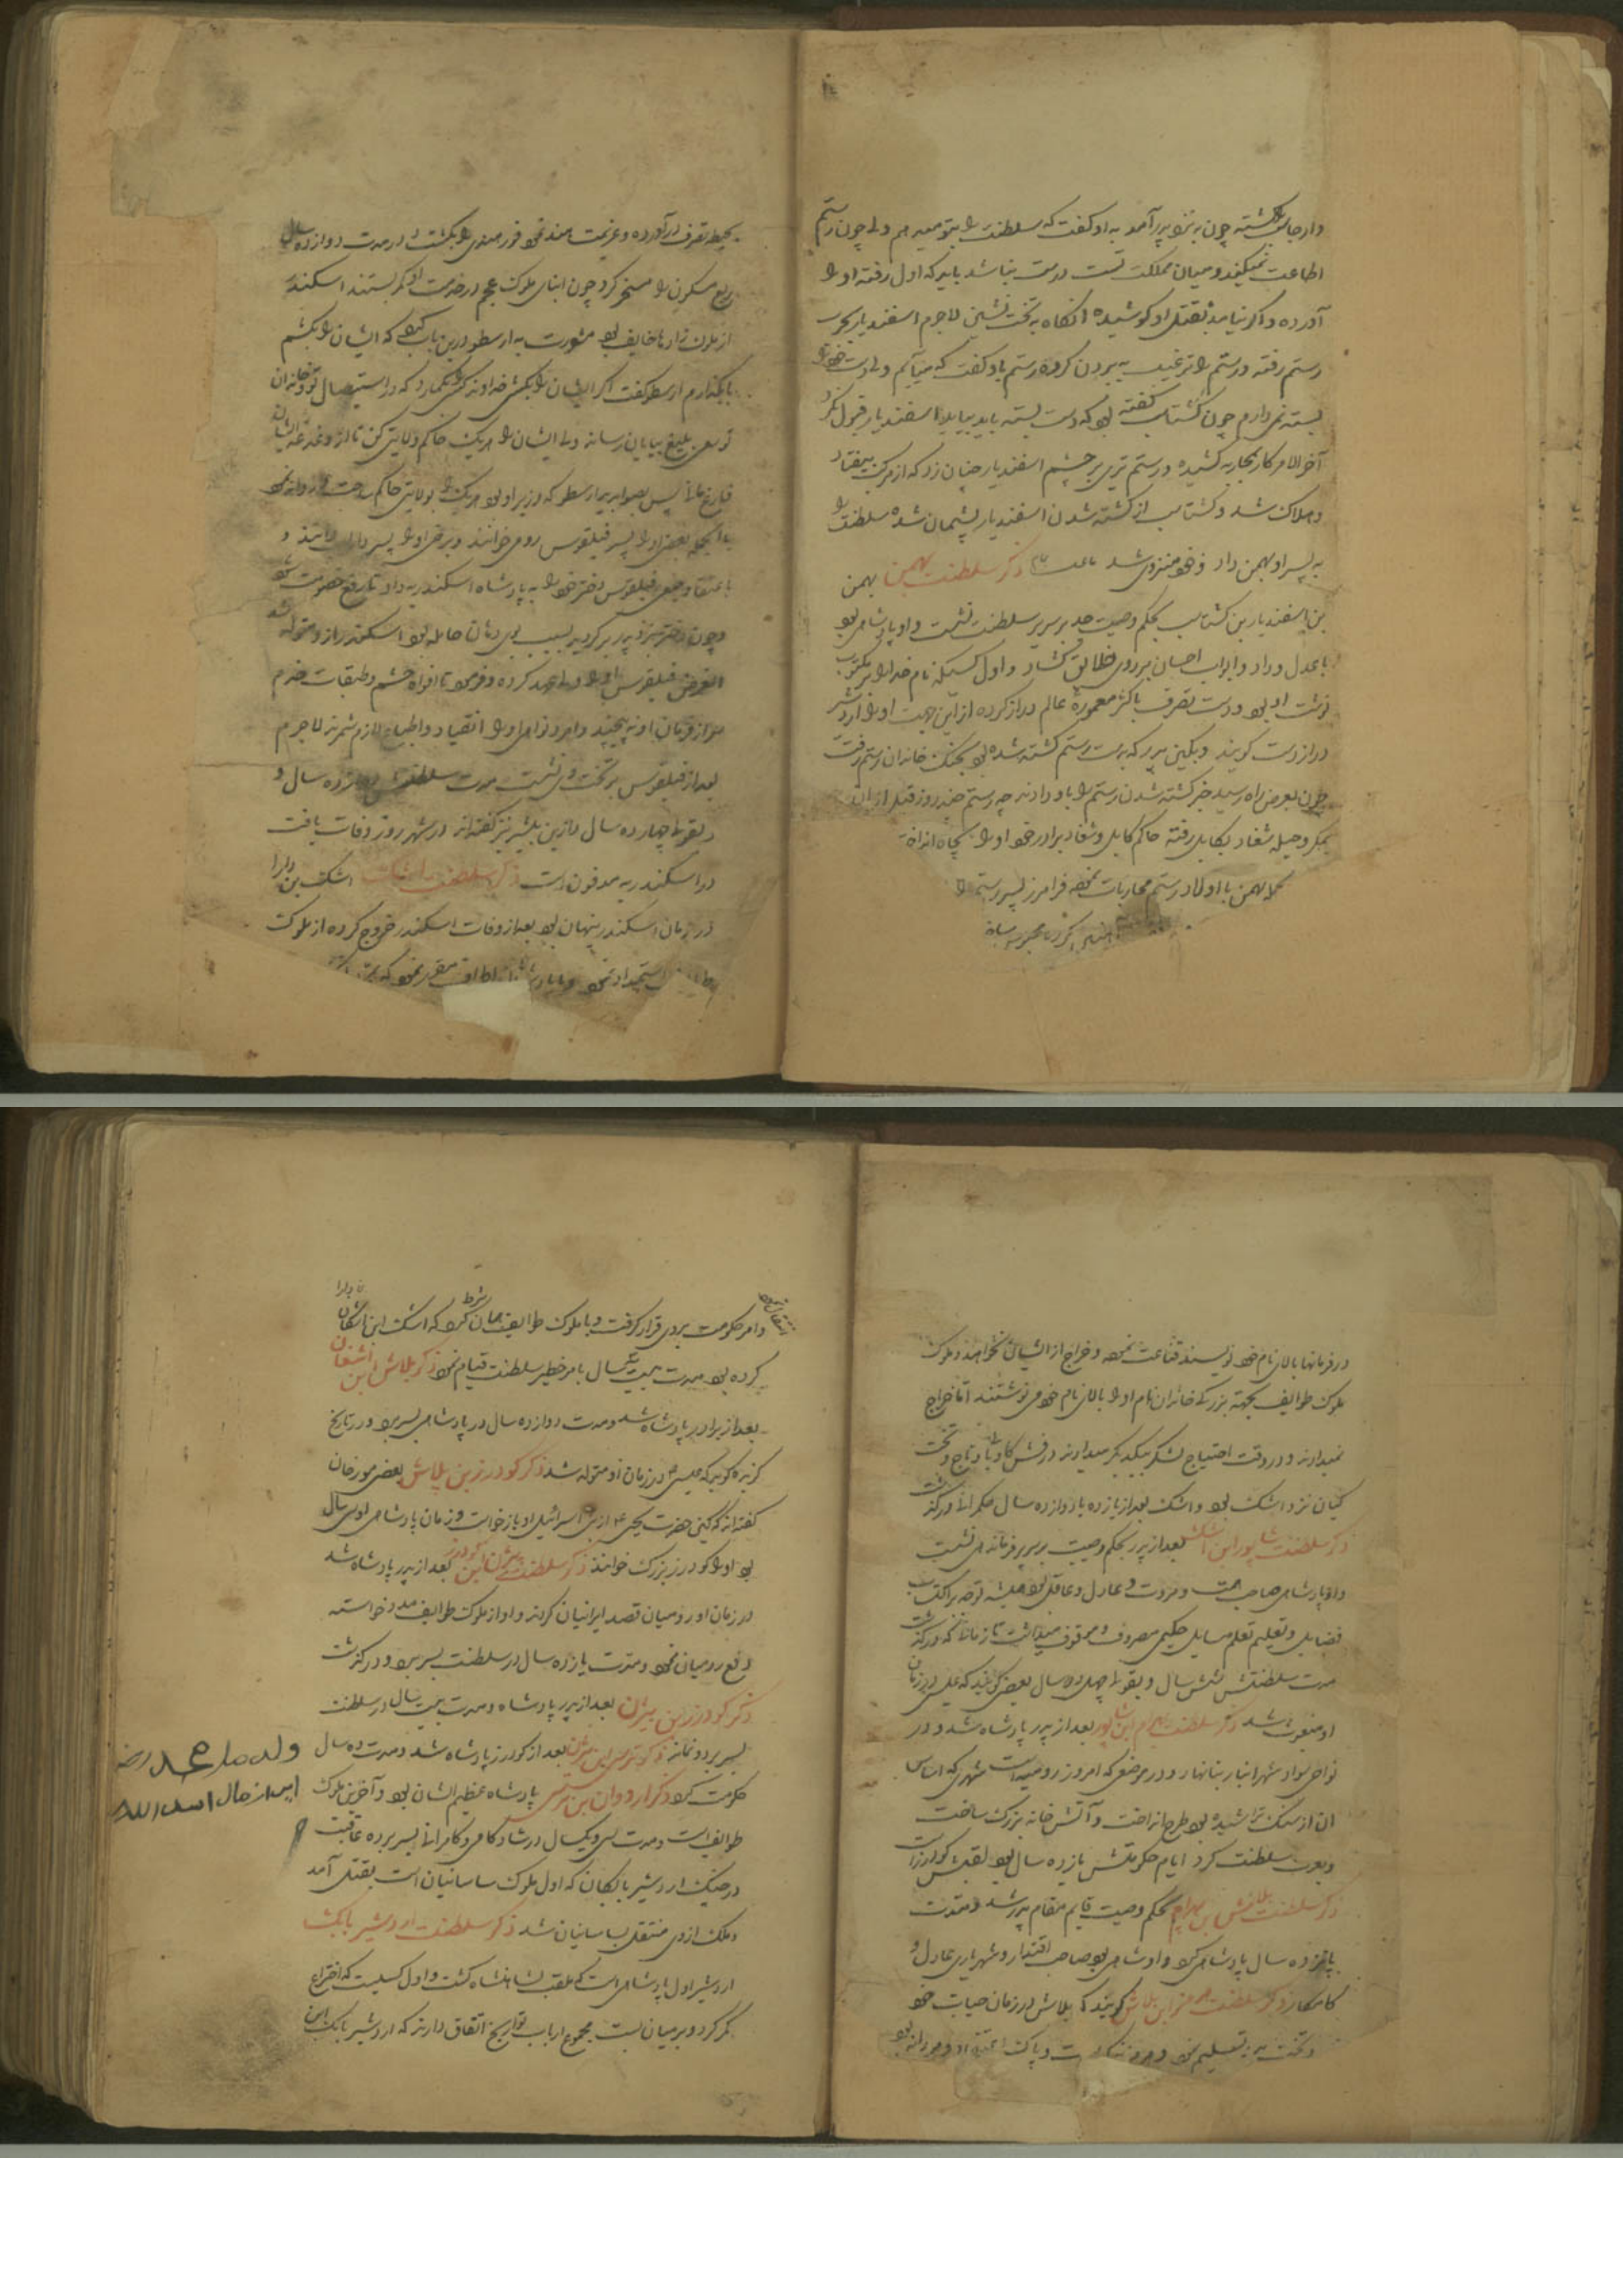 دارجاسب کشته چون به نزد پدر آمد به او گفت که سلطنت را بتو میدهم ولی چون رستم
اطاعت نمیکند و میان مملکت تست درست نباشد باید که اول رفته او را
آورده و اگر نیامد بقتل او کوشیده آنگاه به تخت نشینی لاجرم اسفندیار بحرب
رستم رفته و رستم را ترغیب به بردن کرده رستم باو گفت که میآیم ولی دست خود را
بسته نمی دارم چون گشتاسب گفته بود که دست بسته باید بیاید اسفندیار قبول نکرد
آخر الامر کار بمحاربه کشیده و رستم تیری بر چشم اسفندیار چنان زد که از مرکب بیفتاد
و هلاک شد و گشتاسب از کشته شدن اسفندیار پشیمان شده سلطنت را
به پسر او بهمن داد و خود منزوی شد ذکر سلطنت بهمن بهمن
بن اسفندیار بن گشتاسب بحکم وصیت جد بر سریر سلطنت نشست و او پادشاهی بود
با عدل و داد و ابواب احسان بر روی خلایق گشاد و اول کسیکه نام خدا را بر مکتوب
نوشت او بود و دست تصرف باکثر معموره عالم دراز کرده از این جهت او را اردشیر
دراز دست گویند و بکین پدر که بدست رستم کشته شده بود بجنگ خاندان رستم رفت
چون بعرض راه رسید خبر کشته شدن رستم را باو دادند چه رستم چند روز قبل از آن
بمکر و حیله شغاد بکابل رفته حاکم کابل و شغاد برادر خود او را بچاه انداخت
بهمن با اولاد رستم محاربات نموده فرامرز پسر رستم را
بحیطه تصرف درآورده و عزیمت هند نمود فور هندی را بکشت و در مدت دوازده سال
ربع مسکون را مسخر کرد چون ابنای ملوک عجم در خدمت او کمر بستند اسکندر
از ملوک زادها خایف بود مشورت به ارسطو درین باب کرد که ایشان را بکشم
یا بگذارم ارسطو گفت اگر ایشان را بکشی خداوند کسی بگمارد که در استیصال تو و خاندان
تو سعی بلیغ بپایان رساند ولی ایشان را هر یک حاکم ولایتی کن تا از دغدغه ایشان
فارغ پس بصوابدید ارسطو که وزیر او بود هر یک را بولایتی حاکم ساخت و روانه نمود
بالجمله بعضی او را پسر فیلقوس رومی خوانند و برخی او را پسر داراب دانند و
باعتقاد جمعی فیلقوس دختر خود را به پادشاه اسکندریه داد تا رفع خصومت شود
و چون دختر بنزد پدر برگردید بسبب بوی دهان حامله بود اسکندر از او متولد شد
الغرض فیلقوس او را ولی عهد کرده و فرمود تا افواه حشم و طبقات خدم
سر از فرمان او نه پیچند و امر و نواهی او را انقیاد و اطاعت لازم شمرند لاجرم
بعد از فیلقوس بر تخت وی نشست مدت سلطنتش سال و
بقولی چهارده سال در شهر زور وفات یافت
و در اسکندریه مدفون است ذکر سلطنت اشک اشک بن دارا
در زمان اسکندر پنهان بود بعد از وفات اسکندر خروج کرده از ملوک
استمداد نمود
در فرمانها بالای نام خود نویسند قناعت نموده و خراج از ایشان نخواهند و ملوک
ملوک طوایف بجهته بزرگی خاندان نام او را بالای نام خود می نوشتند اما خراج
نمیدادند و در وقت احتیاج لشکر بیکدیگر میدادند درفش کاویانی و تاج و تخت
کیان نزد اشک بود و اشک بعد از یازده یا دوازده سال حکمرانی در گذشت
ذکر سلطنت شاپور ابن اشک بعد از پدر بحکم وصیت بر سریر فرماندهی نشست
و او پادشاهی صاحب همت و مروت و عادل و عاقل بود همیشه توجه بر اکتساب
فضایل و تعلیم تعلم مسایل حکمی مصروف و موقوف میداشت تا زمانی که در گذشت
مدت سلطنتش شش سال و بقولی چهل و دو سال بعضی گویند که عیسی در زمان
او مبعوث شد ذکر سلطنت بهرام ابن شاپور بعد از پدر پادشاه شد و در
نواحی سواد شهر انبار بنا نهاد و در موضعی که امروز رومیه است شهری که اساس
آن از سنگ تراشیده بود طرح انداخت و آتش خانه بزرگ ساخت
و بعدل سلطنت کرد ایام حکومتش یازده سال بود لقبش گودرز است
ذکر سلطنت بلاش بن بهرام بحکم وصیت قایم مقام پدر شد و مدت
پانزده سال پادشاهی کرد و او شاهی بود صاحب اقتدار و شهریاری عادل و
کامکار ذکر سلطنت هرمز ابن بلاش گویند که بلاش در زمان حیات خود
و تخت به تسلیم نمود
و امر حکومت بروی قرار گرفت و با ملوک طوایف همان شرط کرد که اشک ابن دارا
کرده بود مدت بیست سال بامر خطیر سلطنت قیام نمود ذکر بلاش ابن اشغان
بعد از برادر پادشاه شد و مدت دوازده سال در پادشاهی بسر برد و در تاریخ
گزیده گوید که عیسی در زمان او متولد شد ذکر گودرز بن بلاش بعضی مورخان
گفته اند که کین حضرت یحیی از بنی اسرائیل او باز خواست و زمان پادشاهی او سی سال
بود او را گودرز بزرگ خوانند ذکر سلطنت بیژن ابن گودرز بعد از پدر پادشاه شد
در زمان او رومیان قصد ایرانیان کردند و او از ملوک طوایف مدد خواسته
دفع رومیان نمود و مدت یازده سال در سلطنت بسر برد و در گذشت
ذکر گودرز ابن بیژن بعد از پدر پادشاه و مدت بیست سال در سلطنت
بسر برد و نماند ذکر نرسی ابن بیژن بعد از گودرز پادشاه شد و مدت ده سال
حکومت کرد ذکر اردوان بن نرسی پادشاه عظیم الشان بود و آخرین ملوک
طوایف است و مدت سی و یک سال در شادکامی و کامرانی بسر برده عاقبت
در جنگ اردشیر بابکان که اول ملوک ساسانیان است بقتل آمد
و ملک از وی منتقل بساسانیان شد ذکر سلطنت اردشیر بابک
اردشیر اول پادشاهی است که ملقب بشاهنشاه گشت و اول کسیست که اختراع
کمر کرد و بر میان بست مجموع ارباب تواریخ اتفاق دارند که اردشیر بابک ابن